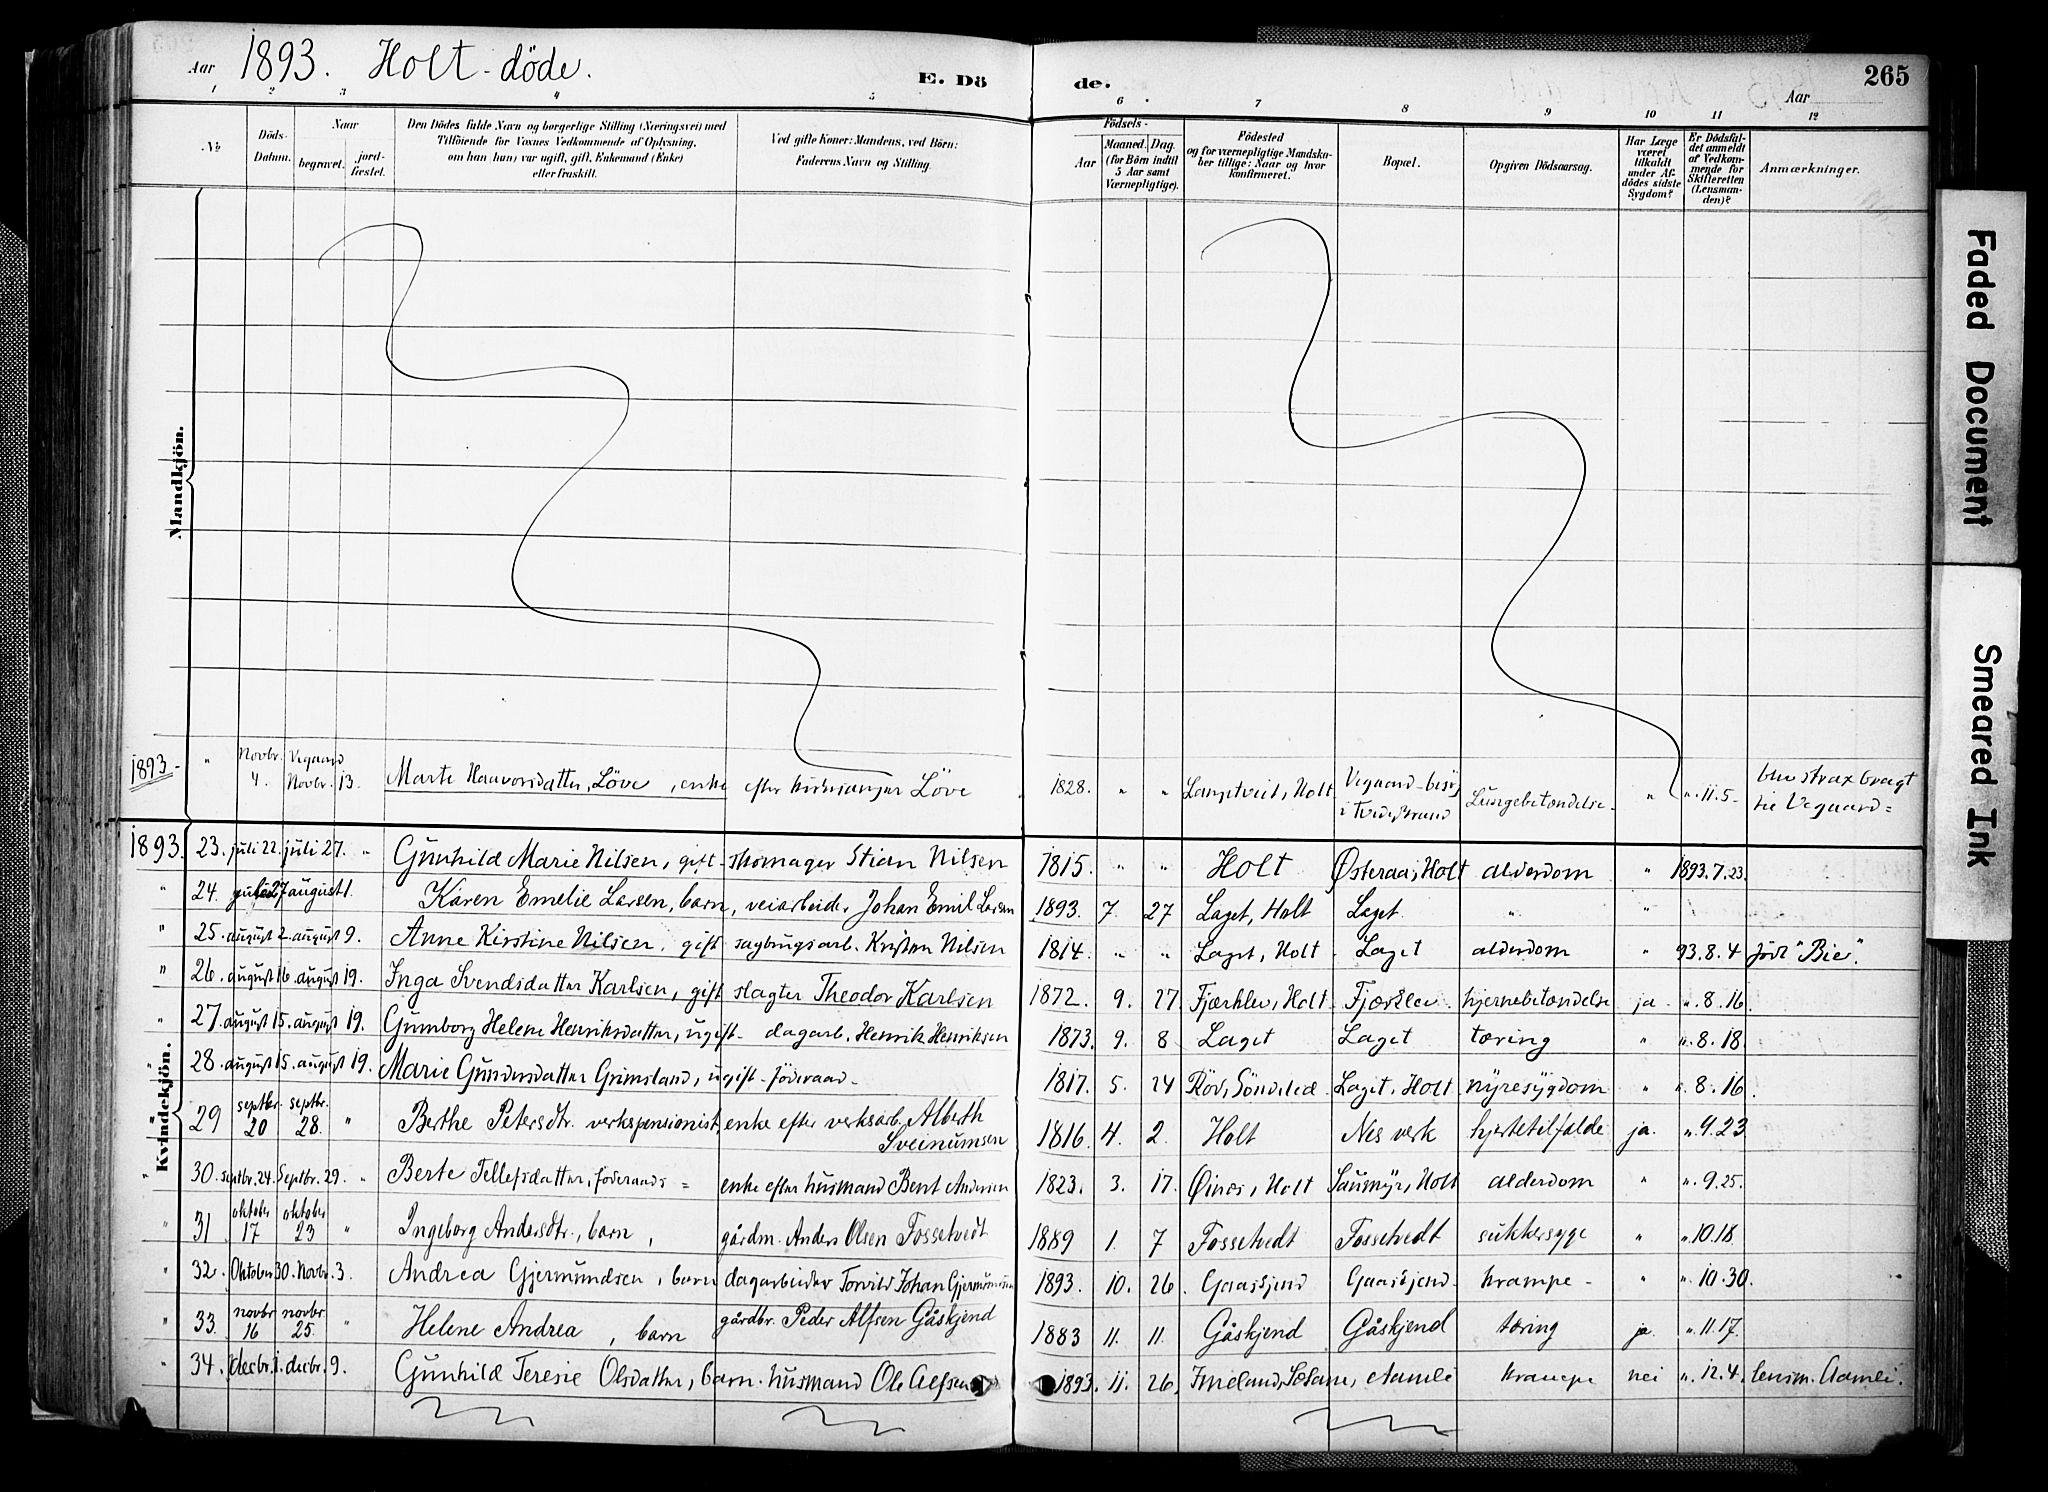 Aar 1893. Holt-döde. E. Döde. Aar 265
1 2 3 4 5 6 7 8 9 10 11 12
No. Döds-Datum. Naar begravet. jordfæstet. Den Dödes fulde Navn og borgerlige Stilling (Næringsvei) med Tilföiende for Voxnes Vedkommende af Oplysning, om han (hun) var ugift, gift, Enkemand (Enke) eller fraskilt. Ved gifte Koner: Mandens, ved Börn: Faderens Navn og Stilling. Födsels- Aar Maaned. Dag. (for Börn indtil 5 Aar samt Værnepligtige). Födested og for værnepligtige Mandskaber tillige: Naar og hvor konfirmeret. Bopæl. Opgiven Dödsaarsag. Har Læge været tilkaldt under Afdödes sidste Sygdom? Er Dödsfaldet anmeldt af Vedkommende for Skifteretten (Lensmanden)? Anmærkninger.
Mandkjön.
1893. " Novbr. 4. Vegaard Novbr. 13. Marte Haavorsdatter, Löve, enke efter kirkesanger Löve 1828. " " Langtveit, Holt Vegaard-besög i Tvedestrand Lungebetændelse " ". 11. 5. blev strax bragt til Vegaard=
Kvindekjön.
1893. 23. juli 22. juli 27. " Gunhild Marie Nilsen, gift skomager Stian Nilsen 1815. " " Holt Østeraa, Holt alderdom " 1893.7.23.
" 24. juli 27 august 1. Karen Emelie Larsen, barn, veiarbeider Johan Emil Larsen 1893. 7. 27 Laget, Holt Laget. " "
" 25. august 2. august 9. Anne Kirstine Nilsen, gift sagbrugsarb. Kristen Nilsen 1814. " " Laget, Holt. Laget alderdom " 93.8.4 född "Bie".
" 26. august 16. august 19. Inga Svendsdatter Karlsen, gift slagter Theodor Karlsen 1872. 9. 27 Fjærklev, Holt Fjærklev hjernebetændelse ja. ". 8. 16.
" 27. august 15. august 19. Gumborg Helene Henriksdatter, ugift- dagarb. Henrik Henriksen 1873. 9. 8 Laget Laget tæring " ". 8. 18.
" 28. august 15. august 19. Marie Gundersdatter Grimsland, ugift-föderaad- 1817. 5. 24 Röd, Söndeled Laget, Holt nyresygdom " ". 8. 16.
" 29 septbr. 20 septbr. 28. " Berthe Petersdtr. verkspensionist, enke efter verksarb. Alberth Sveinumsen 1816. 4. 2. Holt Nes verk hjertetilfælde ja. ". 9. 23
" 30. septbr. 24. Septbr. 29. " Berte Tellefsdatter, föderaads = enke efter husmand Bent Andersen 1823. 3. 17. Øinæs, Holt Saumyr, Holt alderdom " ". 9. 25.
" 31 oktober 17 oktober 23 " Ingeborg Andersdtr., barn, gårdm. Anders Olsen Fossetvedt 1889 1. 7 Fossetvedt Fossetvedt sukkersyge " ". 10. 18.
" 32. Oktober 30. Novbr. 3. Andrea Gjermundsen, barn dagarbeider Torvild Johan Gjermundsen 1893. 10. 26. Gaaskjend Gaaskjend krampe- " ". 10. 30.
" 33. novbr 16 novbr 25. " Helene Andrea, barn gårdbr. Peder Alfsen Gåskjend 1883 11. 11. Gåskjend Gåskjend tæring ja. ". 11. 17.
" 34. decbr. 1. decbr. 9. Gunhild Teresie Olsdatter, barn. husmand Ole Alfsen 1893. 11. 26. Aamli krampe nei ". 12. 4. lensm. Aamli.
Faded Document
Smeared Ink